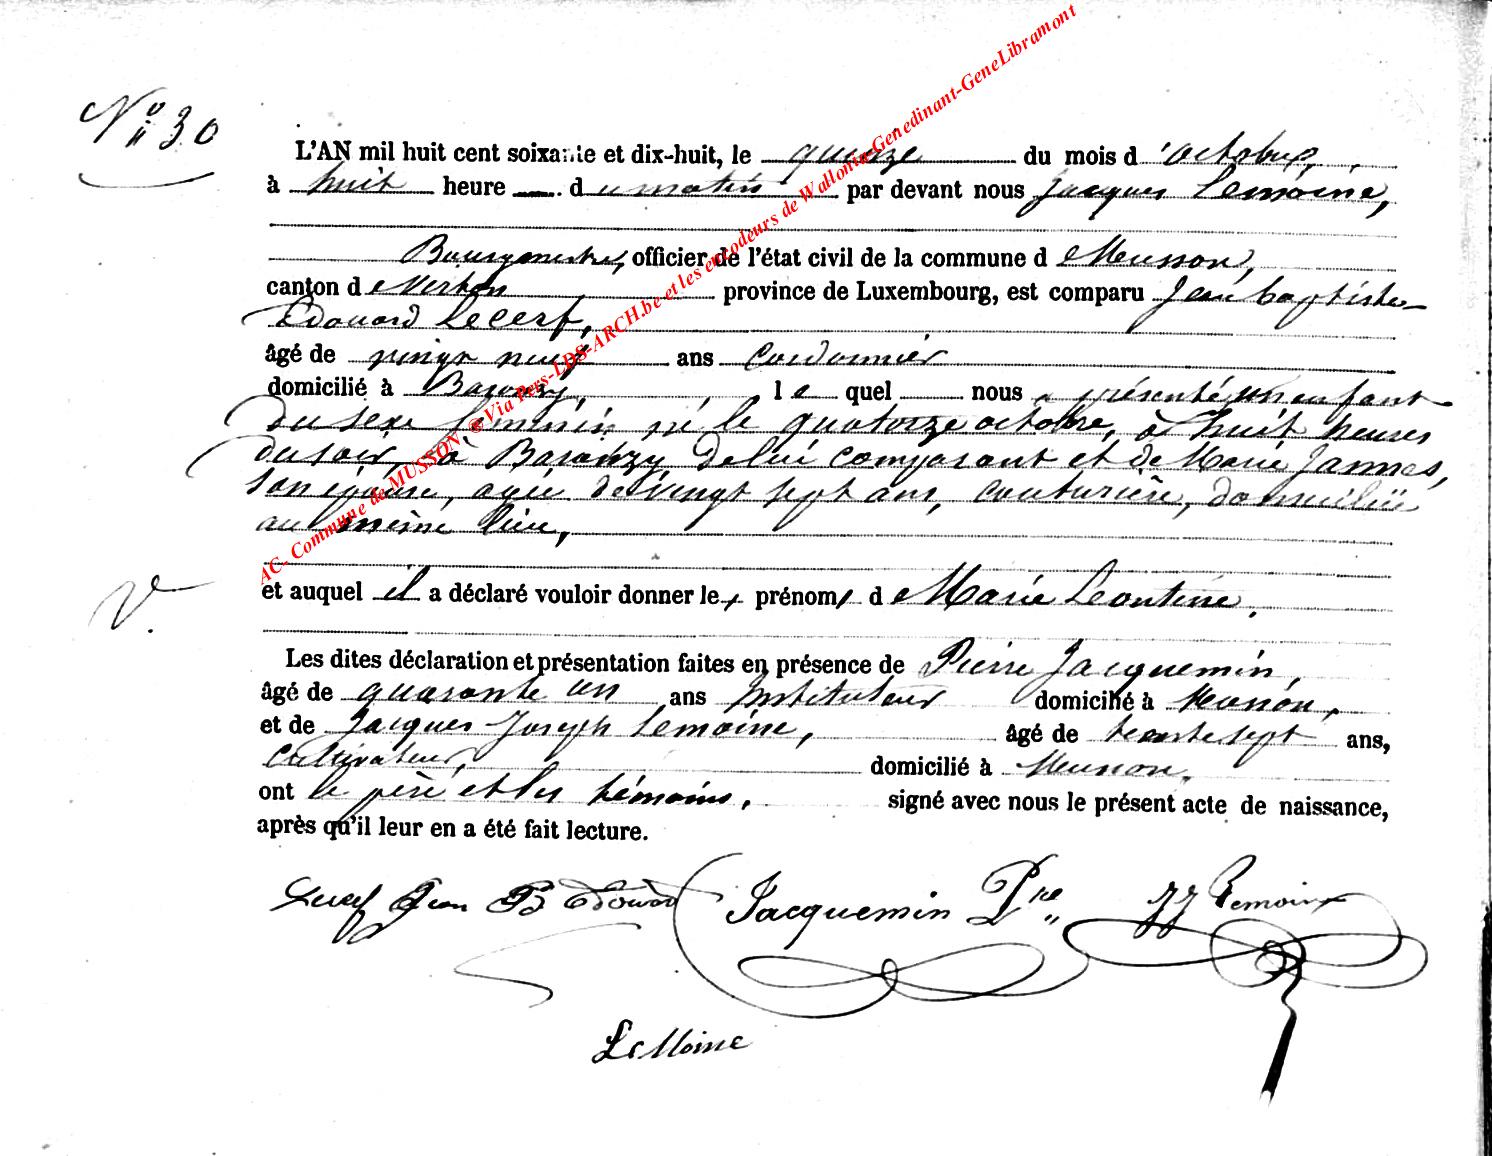 N° 30
L'AN mil huit cent soixante et dix-huit, le quinze du mois d'octobre,
à huit heure du matin par devant nous Jacques Lemoine,
Bourgmestre, officier de l'état civil de la commune d Musson,
canton d Virton province de Luxembourg, est comparu Jean baptiste
Edouard Lecerf,
âgé de vingt neuf ans Cordonnier
domicilié à Baranzy, le quel nous a présenté un enfant
du sexe féminin né le quatorze octobre, à huit heures
du soir, à Baranzy, de lui comparant et de Marie Jannes,
son épouse, agée de vingt sept ans, couturière, domiciliée
au même lieu,
et auquel il a déclaré vouloir donner les prénoms d Marie Léontine.
V.
Les dites déclaration et présentation faites en présence de Pierre Jacquemin,
âgé de quarante un ans Instituteur domicilié à Musson,
et de Jacques Joseph Lemoine, âgé de trente sept ans,
Cultivateur, domicilié à Musson,
ont le père et les témoins, signé avec nous le présent acte de naissance,
après qu'il leur en a été fait lecture.
Lecerf Jean B Edouard Jacquemin Pre JJ Lemoine
LeMoine
AC. Commune de MUSSON @Via Pers-LDS-ARCH.be et les encodeurs de Wallonia-Genedinant-GeneLibramont